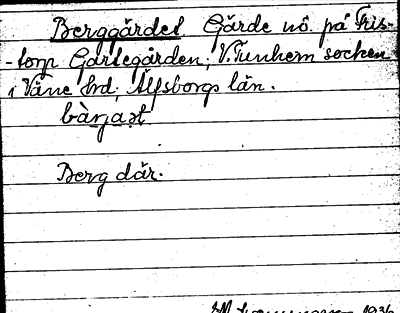 Berggärdet Gärde nö. på Fris-
-torp Gärdegården, V. Tunhem socken
i Väne hd, Älfsborgs län.
bàrjaṣt
Berg där.
1936